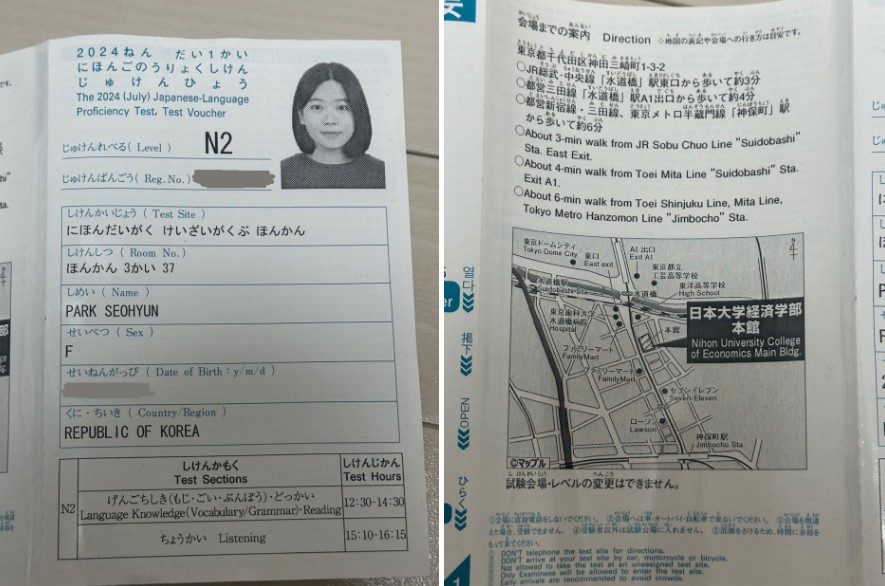 2024ねん だい1かい
にほんごのうりょくしけん
じゅけんひょう
The 2024 (July) Japanese-Language
Proficiency Test, Test Voucher
じゅけんれべる (Level) N2
じゅけんばんごう (Reg.No.)
しけんかいじょう ( Test Site )
にほんだいがく けいざいがくぶ ほんかん
しけんしつ ( Room No.)
ほんかん 3かい 37
しめい ( Name )
PARK SEOHYUN
せいべつ ( Sex )
F
せいねんがっぴ ( Date of Birth : y/m/d )
くに・ちいき ( Country/Region )
REPUBLIC OF KOREA
しけんかもく しけんじかん
Test Sections Test Hours
N2
げんごちしき(もじ・ごい・ぶんぽう)・どっかい
Language Knowledge(Vocabulary/Grammar)・Reading
12:30-14:30
ちょうかい Listening 15:10-16:15
会場までの案内 Direction ◇地図の表記や会場への行き方は目安です。
東京都千代田区神田三崎町1-3-2
○JR総武・中央線「水道橋」駅東口から歩いて約3分
○都営三田線「水道橋」駅A1出口から歩いて約4分
○都営新宿線・三田線、東京メトロ半蔵門線「神保町」駅
から歩いて約6分
○About 3-min walk from JR Sobu Chuo Line "Suidobashi"
Sta. East Exit.
○About 4-min walk from Toei Mita Line "Suidobashi" Sta.
Exit A1.
○About 6-min walk from Toei Shinjuku Line, Mita Line,
Tokyo Metro Hanzomon Line "Jimbocho" Sta.
東京ドームシティ
Tokyo Dome City
東口
East exit
A1 出口
Exit A1
N
4
東京都立
工芸高等学校
水道橋駅
Suidobashi Sta.
水道橋
東洋高等学校
High School
東京歯科大学
水道橋病院
Hospital
本館
日本大学経済学部
本館
Nihon University College
of Economics Main Bldg.
ファミリーマート
FamilyMart
ファミリーマート
FamilyMart
セブンイレブン
Seven-Eleven
ローソン
Lawson
神保町駅
Jimbocho Sta.
©マップル
試験会場・レベルの変更はできません。
열다
揭下
OPEN
ひらく
①会場に直接電話をしないでください。 ②会場へは車・オートバイ・自転車で来ないでください。
①DON'T telephone the test site for directions.
②DON'T arrive at your test site by car, motorcycle or bicycle.
Not allowed to take the test at an unassigned test site.
Only Examinees will be allowed to enter the test site.
Early arrivals are recommended to avoid crowds.